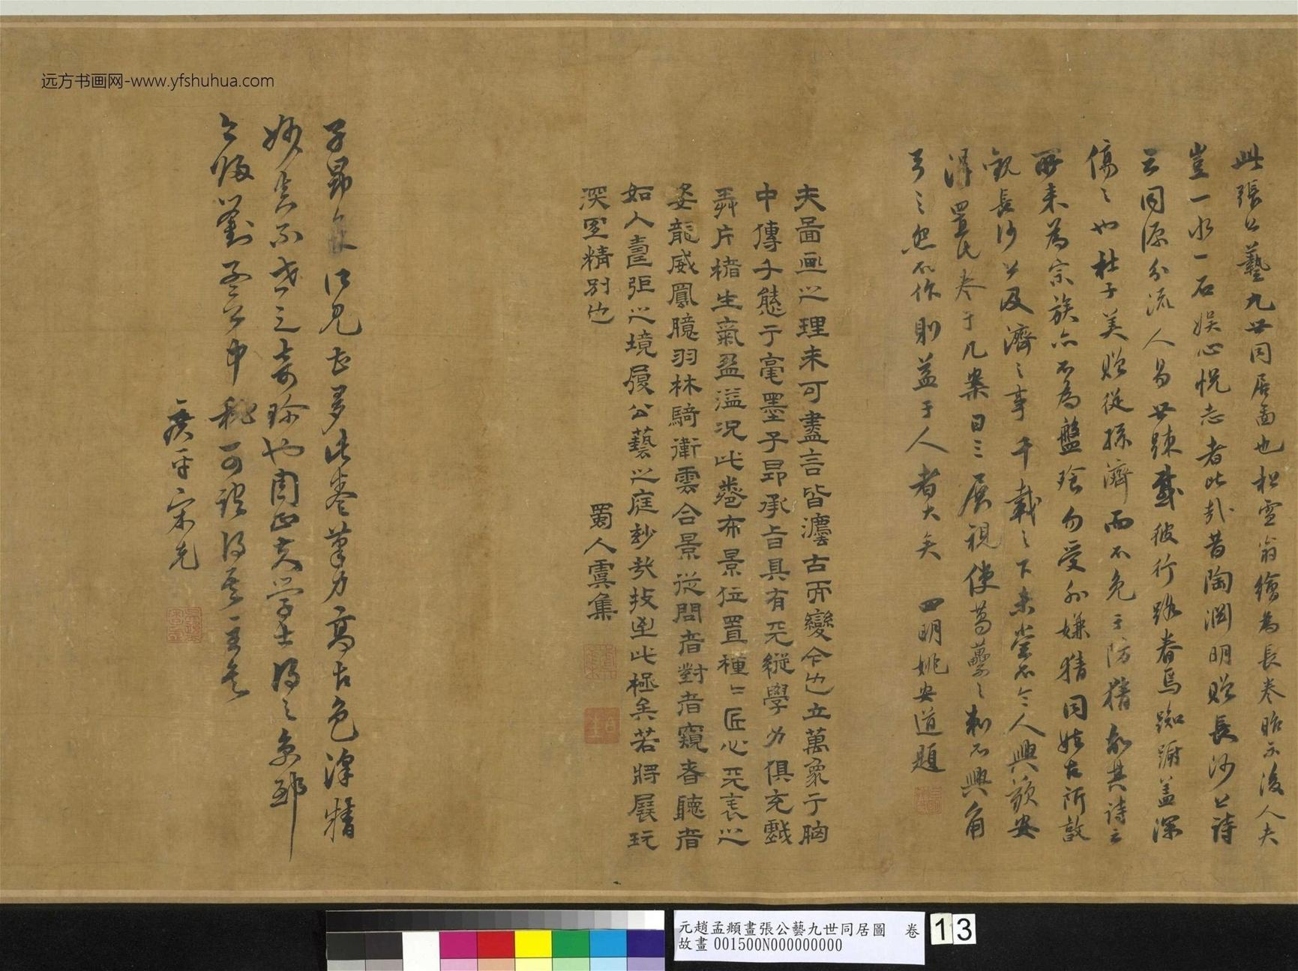 远方书画网-www.yfshuhua.com
此張公藝九世同居圖也松雪翁繪為長卷昭示後人夫
豈一水一石娛心悅志者比哉昔陶淵明贈長沙公詩
云同源分流人易世踈彼行路眷焉踟躕蓋深
傷之也杜子美贈從孫濟而不免于防猜故其詩云
所来為宗族亦不為盤飱勿受外嫌猜同姓古所敦
觀長沙公及濟之事千載之下未嘗不令人興歎安
得置此卷于几案日三展視使葛藟之刺不興角
弓之怨不作則益于人者大矣 四明姚安道題
夫畫之理未可盡言皆古而變今也立萬象于胸
中傳千態于毫墨子昂承旨具有天縱學力俱充戲
弄片楮生氣盈溢况此卷布景位置種種匠心天表之
姿龍威鳳臆羽林騎衛雲合景從問者對者窺者聽者
如入壽張之境履公藝之庭玅哉技進此極矣若將展玩
深思精別也
蜀人虞集
子昂見甚多此卷筆力高古色澤精
妙真不世之奇珎也周文學士得之
今歸劉可謂得其主矣
廣平宋克
元趙孟頫畫張公藝九世同居圖 卷
故畫 001500N000000000
13